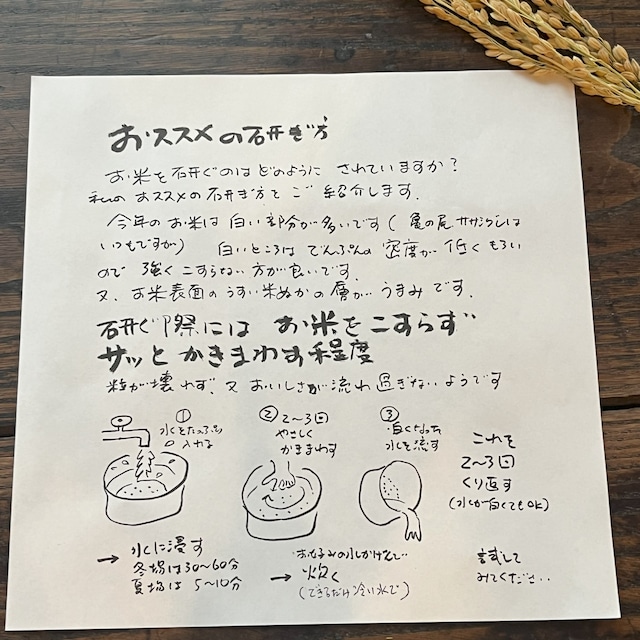 おススメの研ぎ方
お米を研ぐのは どのように されていますか？
私の おススメの研ぎ方を ご紹介します.
今年の お米は 白い部分が多いです(亀の尾 ササシグレは
いつもですが) 白いところは でんぷんの 密度が 低く もろい
ので 強く こすらない方が良いです.
又、お米表面の うすい米ぬかの 層が うまみ です.
研ぐ際には お米を こすらず
サッと かきまわす程度
粒が壊れず、又 おいしさが流れ過ぎないようです
① 水をたっぷり
入れる
② 2〜3回
やさしく
かきまわす
③ 白くなった
水を流す
これを
2〜3回
くり返す
(水が白くてもOK)
→ 水に浸す
冬場は30〜60分
夏場は 5〜10分
→ お好みの水かげんで
炊く
(できるだけ冷い水で)
試して
みてください..